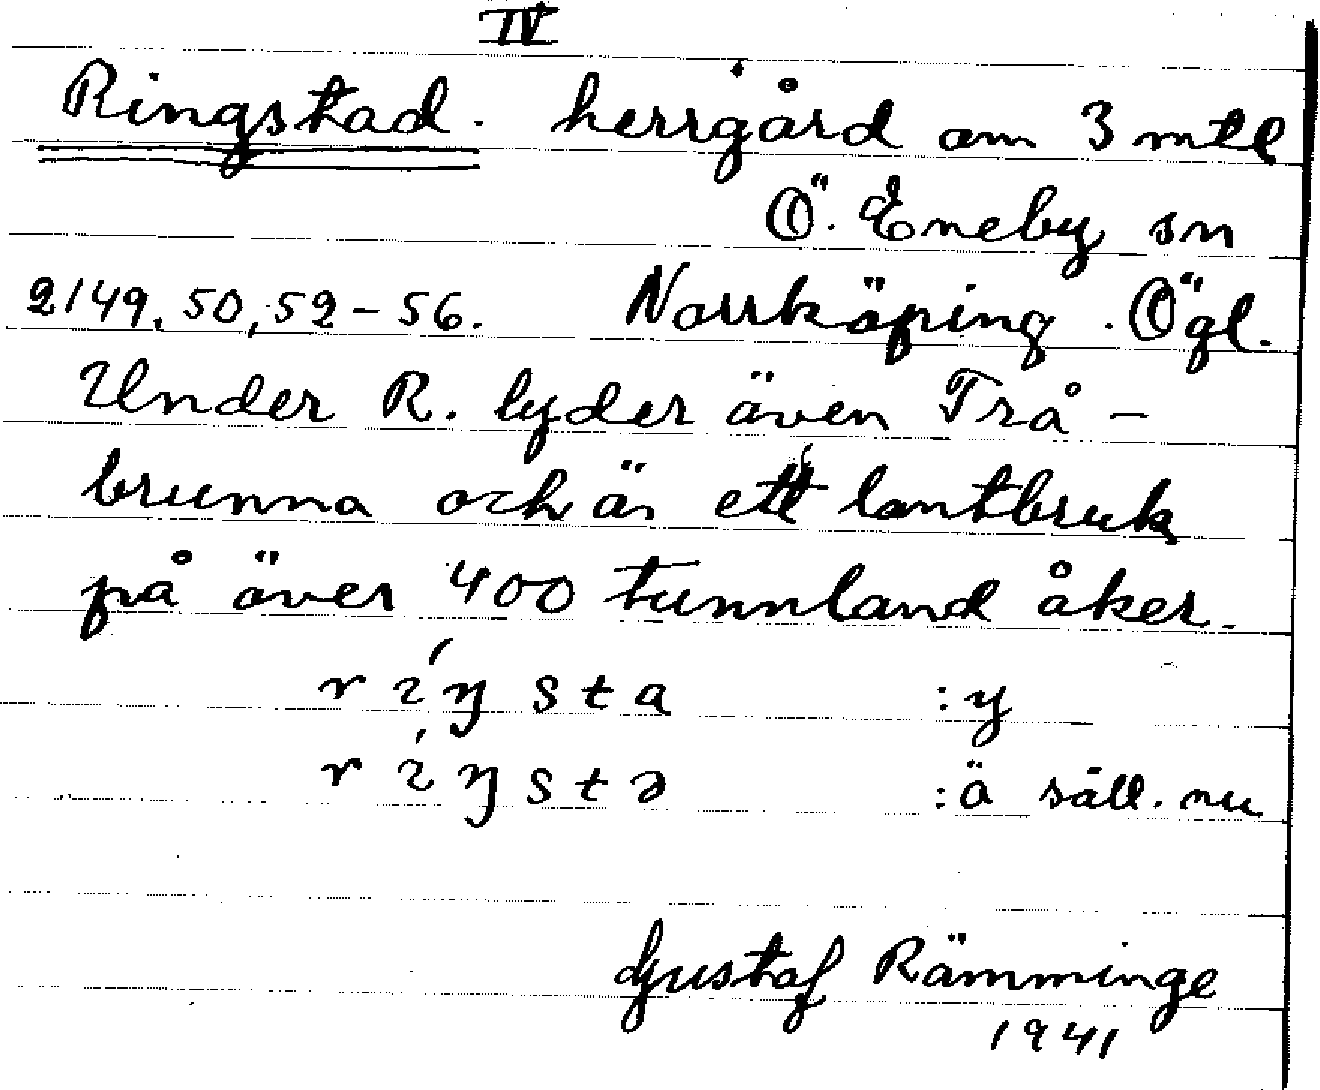 IV
Ringstad. herrgård om 3 mtl
Ö. Eneby sn
2149, 50, 52-56. Norrköping. Ögl.
Under R. lyder även Trå-
brunna och är ett lantbruk
på över 400 tunnland åker.
ríŋsta :y
ríŋstə :ä säll. nu
Gustaf Rämminge
1941